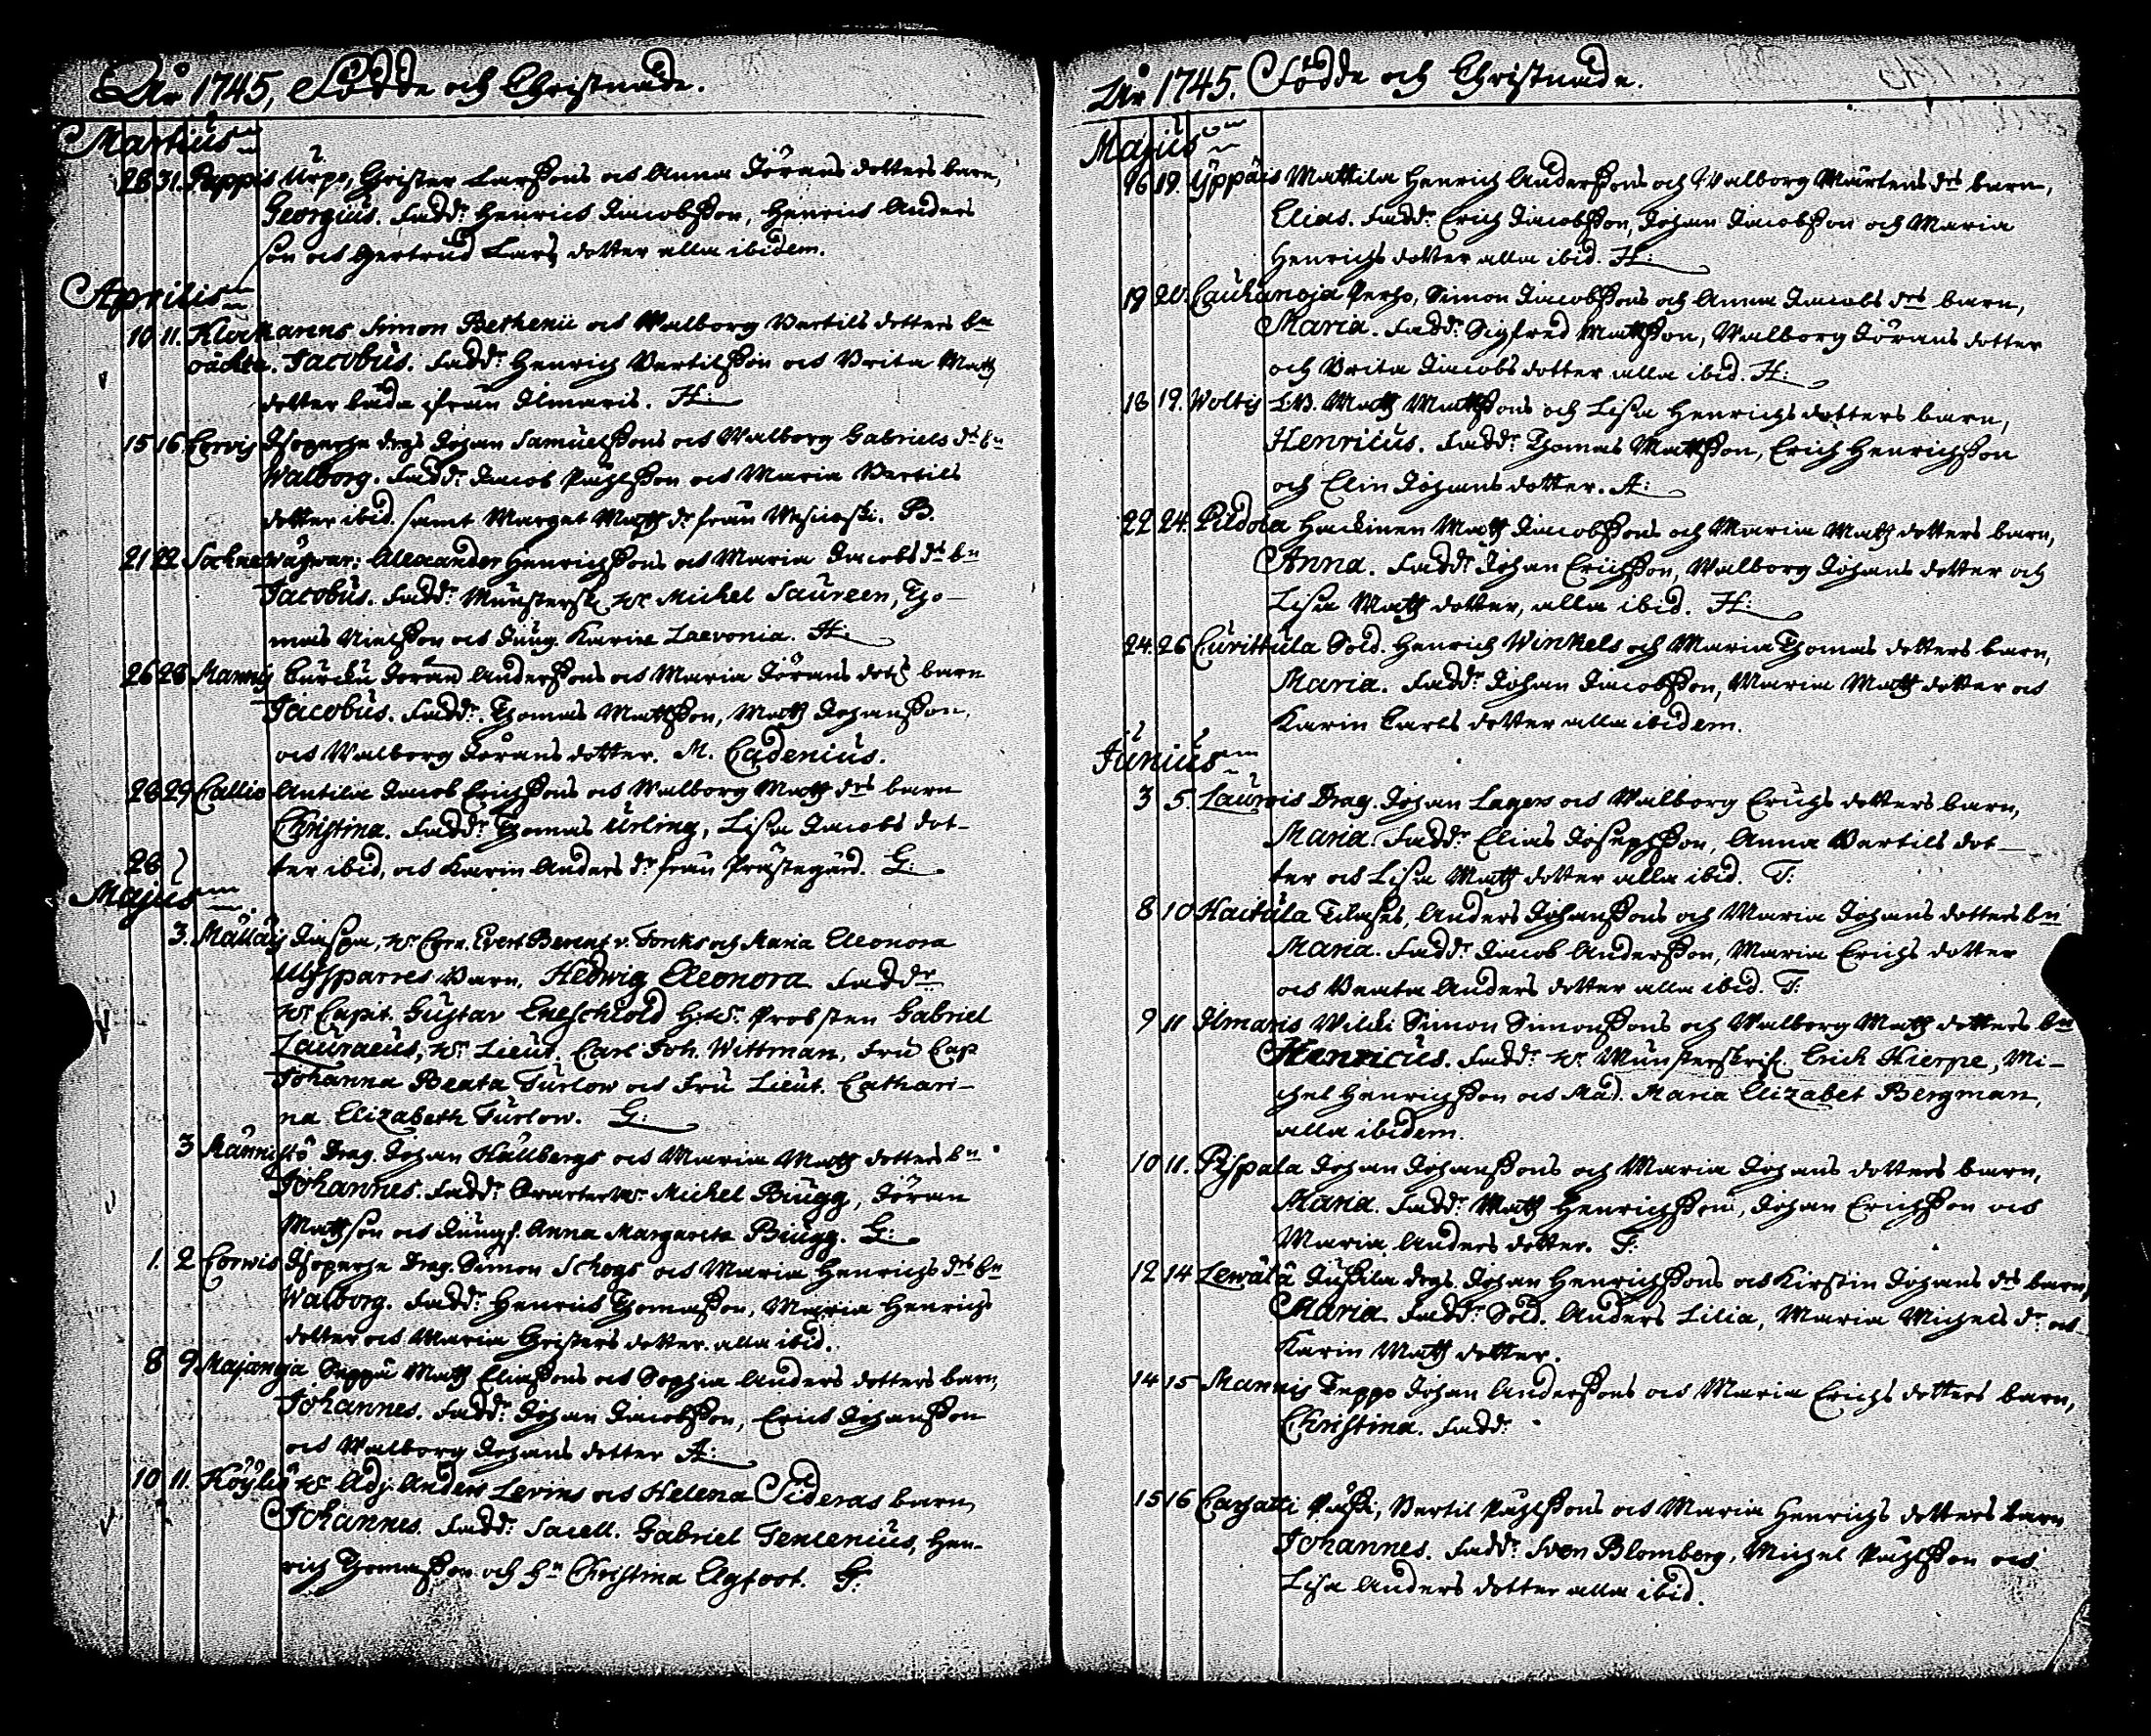 År 1745, Födde och Christnade.
Martius
28 31. Pappis Urpo, Christer Larssons och Anna Jörans dotters barn,
Georgius. Fadd: Henrich Jacobsson, Henrich Anders
son och Gertrud Lars dotter alla ibidem.
Aprilis
10 11. Klockarens Simon Bethenii och Walborg Bertils dotters bn
Jacobus. Fadd: Henrich Bertilsson och Brita Matts
dotter båda ifrån Ilmaris. H:
15 16 Corvis Isoperhe drgs Johan Samuelssons och Walborg Gabriels dr bn
Walborg. Fadd: Jacob Påhlsson och Maria Bertils
dotter ibid. samt Marget Matts dr från B.
21 22 Alexander Henrichssons och Maria Jacobs dr bn
Jacobus. Fadd: Munstersk. Hr Michel Saureen, Tho-
mas Nielsson och Jung. Karin Laevonia. H:
26 28 Mannis Curcku Jöran Anderssons och Maria Jörans dott barn
Jacobus. Fadd: Thomas Mattsson, Matts Johansson,
och Walborg Jörans dotter. M. Cadenius.
28 29 Callio Antila Jacob Erichssons och Walborg Matts drs barn
Christina. Fadd: Thomas Urling, Lisa Jacobs dot-
28 ter ibid, och Karin Anders dr från Prästegård. G:
Majus
3. Evert Berent v. Torcks och Maria Eleonora
Ulfsparres barn, Hedwig Eleonora Faddr
Hr Capit. Gustav Eneschiold Hr Probsten Gabriel
Lauraeus, Hr Lieut. Carl Joh. Wittman, Fru Cap
Johanna Beata Turlow och Fru Lieut. Cathari-
na Elizabeth Turlow. G:
3 Männistö Drag. Johan Hällbergs och Maria Matts dotters bn
Johannes. Fadd: Quartermr Michel Biugg, Jöran
Mattsson och Jungf. Anna Margareta Biugg. G:
1. 2 Corwis Isoperhe Drag. Simon Skogs och Maria Henrichs drs bn
Walborg. Fadd: Henrich Thomasson, Maria Henrichs
dotter och Maria Christers dotter alla ibid.
8 9 Majanoja Seppä Matts Eliassons och Sophia Anders dotters barn,
Johannes. Fadd: Johan Jacobsson, Erich Johansson
och Walborg Johans dotter A:
10 11. Köyliö Hr Adj. Anders Levins och Helena Sideras barn
Johannes. Fadd: Sacell. Gabriel Tenlenius, Hen-
rich Thomasson och Hu Christina Agfoot. G:
År 1745. Födde och Christnade.
Majus
16 19. Yppäis Mattila Henrich Anderssons och Walborg Mårtens drs barn,
Elias. Fadd: Erich Jacobsson, Johan Jacobsson och Maria
Henrichs dotter alla ibid. H:
19 20. Cauhanoja Perho, Simon Jacobssons och Anna Jacobs drs barn,
Maria. Fadd: Sigfred Mattsson, Walborg Jörans dotter
och Brita Jacobs dotter alla ibid. H:
18 19. Woltis LB. Matts Mattssons och Lisa Henrichs dotters barn,
Henricus. Fadd: Thomas Mattsson, Erich Henrichsson
och Elin Johans dotter. A:
22 24. Pildola Hackinen Matts Jacobssons och Maria Matts dotters barn,
Anna. Fadd: Johan Erichsson, Walborg Johans dotter och
Lisa Matts dotter, alla ibid. H:
24. 26 Curittula Sold. Henrich Winkels och Maria Thomas dotters barn,
Maria. Fadd: Johan Jacobsson, Maria Matts dotter och
Karin Carls dotter alla ibidem.
Junius
3 5. Laurois Drag. Johan Lagers och Walborg Erichs dotters barn,
Maria. Fadd: Elias Josephsson, Anna Bertils dot-
ter och Lisa Matts dotter alla ibid. T.
8 10 Haitula Anders Johanssons och Maria Johans dotters bn
Maria. Fadd: Jacob Andersson, Maria Erichs dotter
och Beata Anders dotter alla ibid. T:
9 11 Ilmaris Wilcki Simon Simonssons och Walborg Matts dotters bn
Henricus. Fadd: Hr Munsterskrif. Erich Hierpe, Mi-
chel Henrichsson och Mad. Maria Elizabet Bergman,
alla ibidem.
10 11. Pispala Johan Johanssons och Maria Johans dotters barn,
Maria. Fadd: Matts Henrichsson, Johan Erichsson och
Maria Anders dotter. T:
12 14 Lewälä Jussila drgs. Johan Henrichssons och Kirstin Johans drs barn,
Maria. Fadd: Sold. Anders Lilia, Maria Michels dr och
Karin Matts dotter.
14 15 Mannis Teppo Johan Anderssons och Maria Erichs dotters barn,
Christina. Fadd:
15 16 Carhatti Påhli, Bertil Påhlssons och Maria Henrichs dotters barn
Johannes. Fadd: Sven Blomberg, Michel Påhlsson och
Lisa Anders dotter alla ibid.